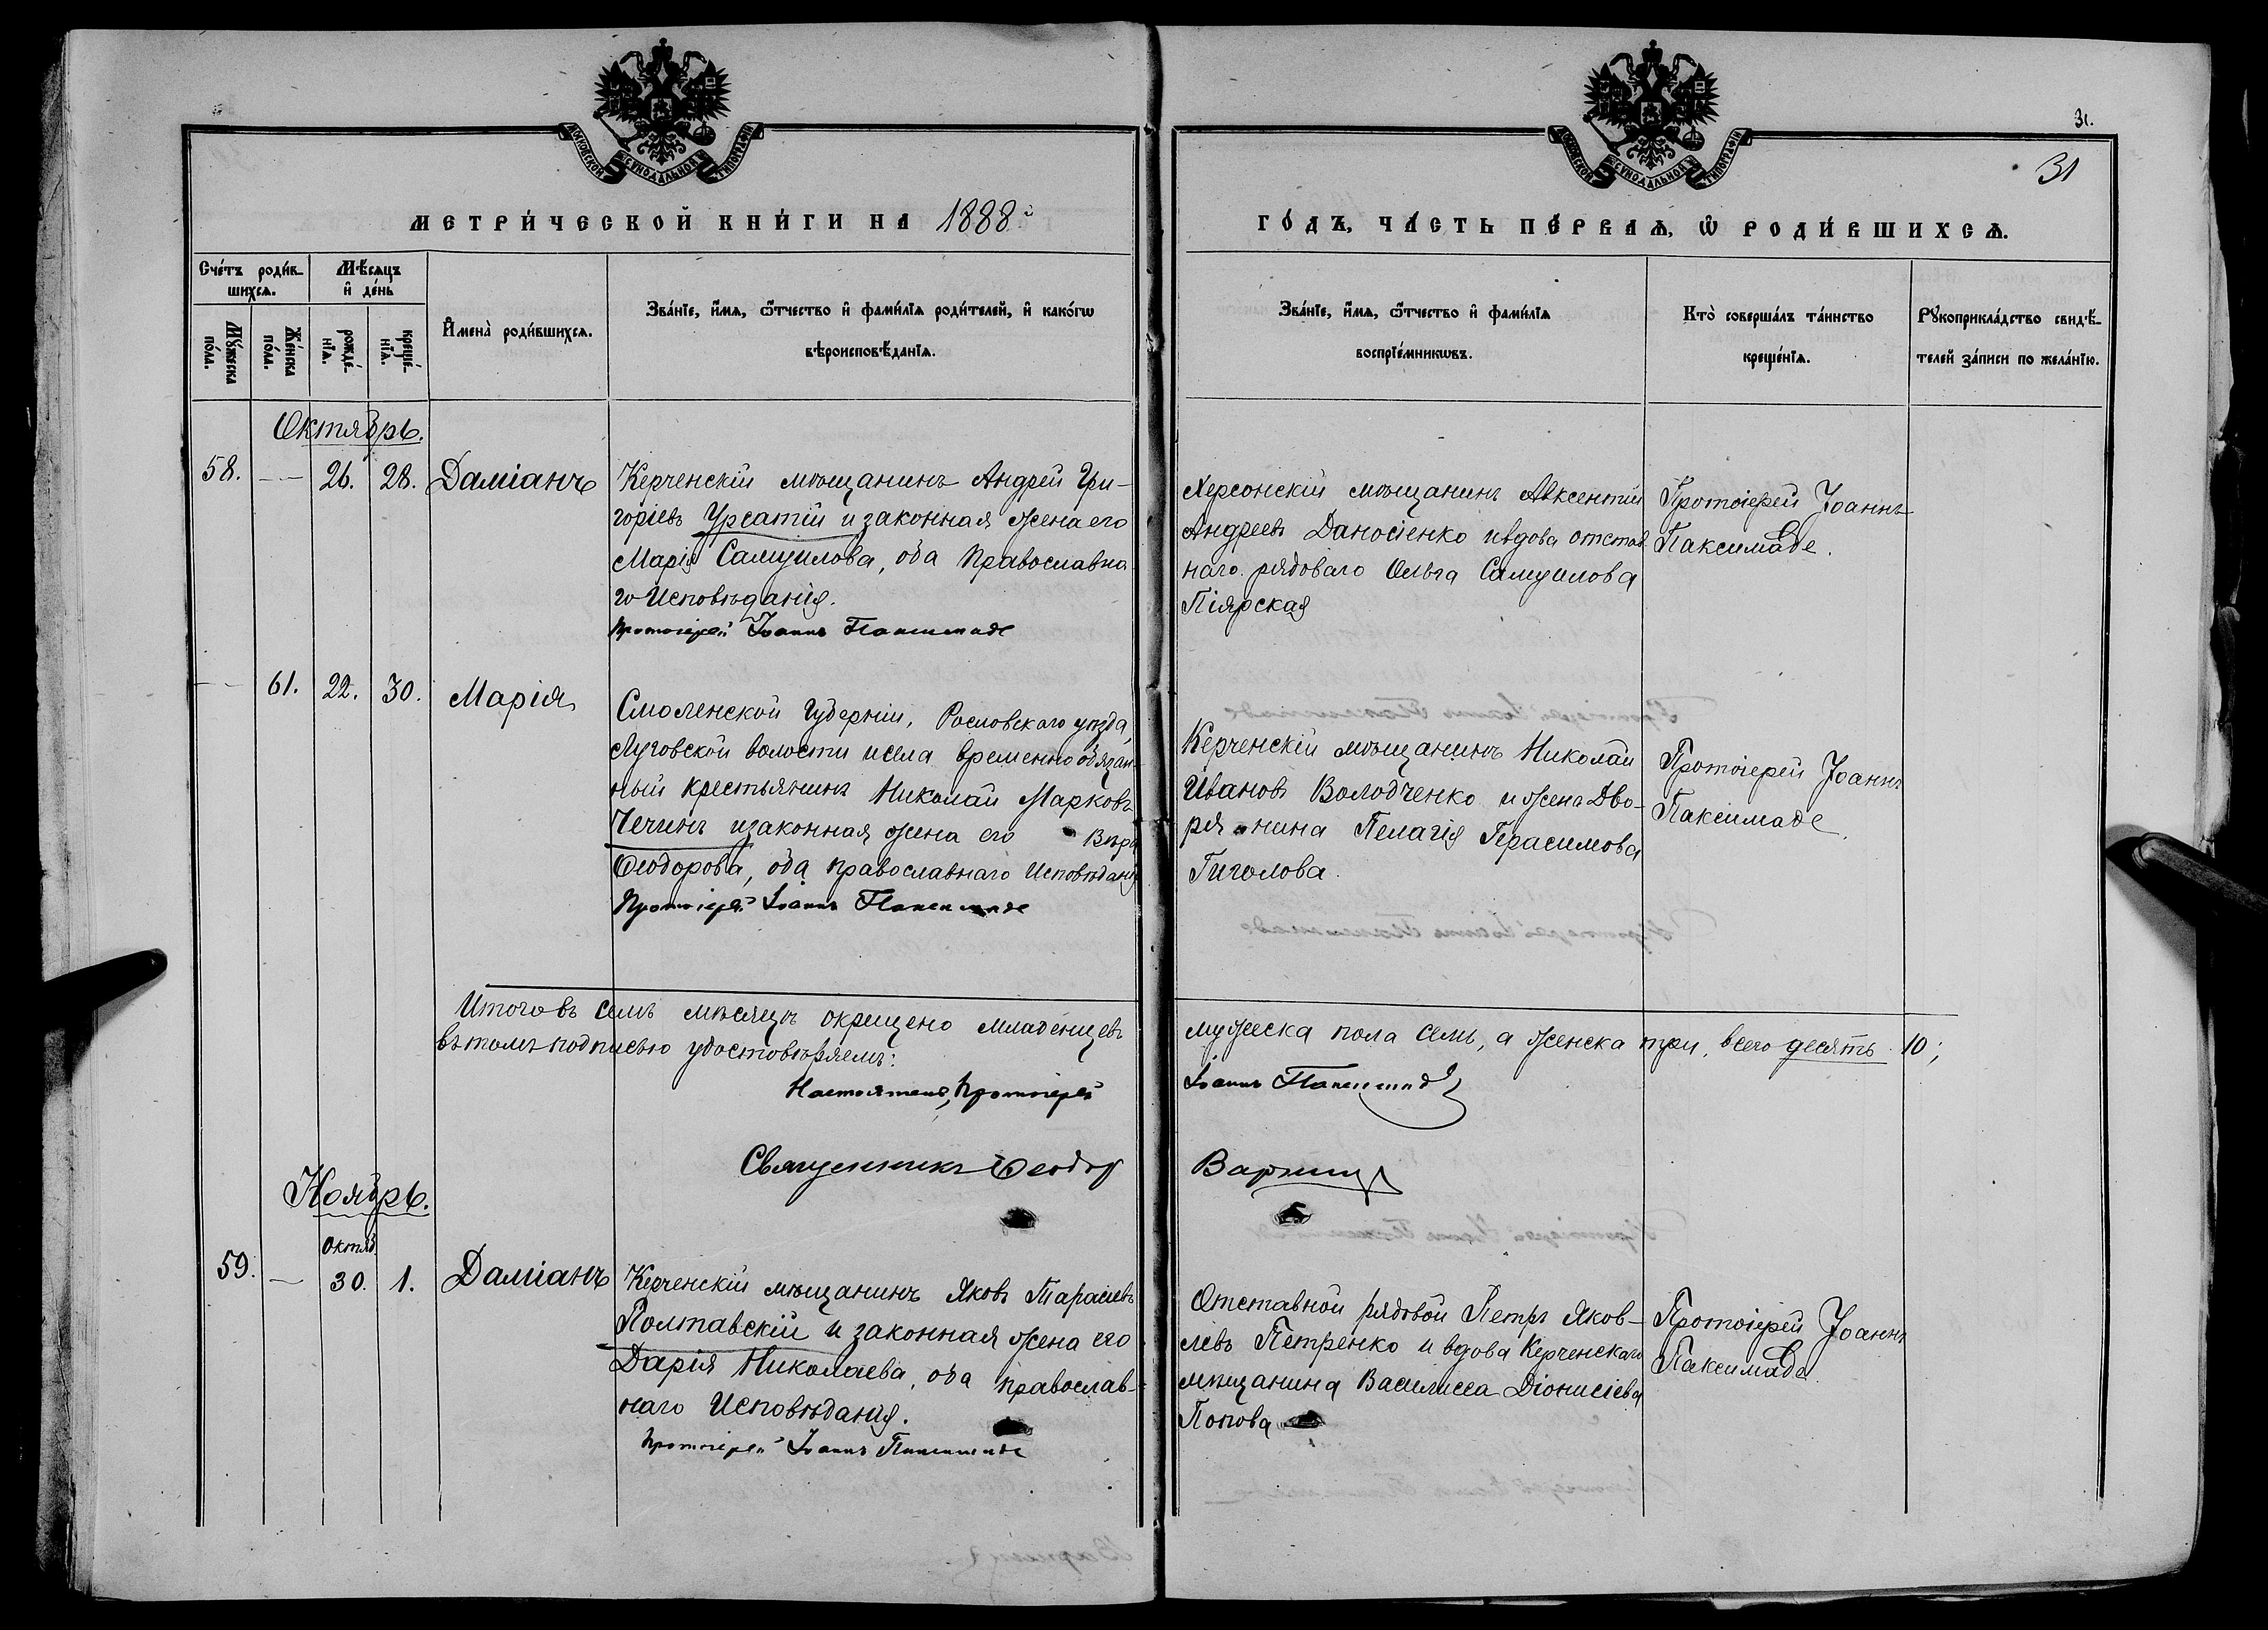 МОСКОВСКОЙ СѴНОДАЛЬНОЙ ТИПОГРАФІИ
МОСКОВСКОЙ СѴНОДАЛЬНОЙ ТИПОГРАФІИ
31.
31
МЕТРИ́ЧЕСКОЙ КНИ́ГИ НА 1888й
ГО́ДЪ, ЧА́СТЬ ПЕ́РВАѦ, Ѡ҆ РОДИ́ВШИХСѦ.
Сче́тъ роди́в-
шихсѧ.
Мѣ́сяцъ
и҆ де́нь
Мꙋ́жеска
по́ла.
Же́нска
по́ла.
рожде́-
нїѧ.
креще́-
нїѧ.
И҆мена̀ роди́вшихсѧ.
Зва́нїе, и҆́мѧ, ѻ҆́тчество и҆ фами́лїѧ роди́телей, и҆ како́гѡ
вѣроисповѣ́данїѧ.
Зва́нїе, и҆́мѧ, ѻ҆́тчество и҆ фами́лїѧ
воспрїе́мникѡвъ.
Кто̀ соверша́лъ та́инство
креще́нїѧ.
Рꙋкоприкла́дство свидѣ́-
телей за́писи по жела́нїю.
Октябрь.
58. — 26. 28. Даміанъ
Керченскій мѣщанинъ Андрей Гри-
горіевъ Урсатій и законная жена его
Марія Самуилова, оба Православна-
го Исповѣданія.
Протоіерей Іоаннъ Паксимаде
Херсонскій мѣщанинъ Авксентій
Андреевъ Даносіенко и вдова отстав-
наго рядоваго Ольга Самуилова
Піярская
Протоіерей Іоаннъ
Паксимаде.
— 61. 22. 30. Марія
Смоленской Губерніи, Рословскаго уѣзда,
Луговской волости и села временно обязан-
ный крестьянинъ Николай Марковъ
Чечинъ и законная жена его Вѣра
Ѳеодорова, оба православнаго Исповѣданія
Протоіерей Іоаннъ Паксимаде
Керченскій мѣщанинъ Николай
Ивановъ Володченко и жена Дво-
рянина Пелагія Герасимова
Гиголова.
Протоіерей Іоаннъ
Паксимаде.
Итого въ семъ мѣсяцѣ окрещено младенцевъ
мужеска пола семь, а женска три, всего десять 10;
въ томъ подписью удостовѣряемъ:
Настоятель, Протоіерей
Іоаннъ Паксимаде
Священникъ Ѳеодоръ
Ноябрь.
Октяб.
59. — 30. 1. Даміанъ
Керченскій мѣщанинъ Яковъ Тарасіевъ
Полтавскій и законная жена его
Дарія Николаева, оба православ-
наго Исповѣданія.
Протоіерей Іоаннъ Паксимаде
Отставной рядовой Петръ Яков-
левъ Петренко и вдова Керченскаго
мѣщанина Василисса Діонисіева
Попова
Протоіерей Іоаннъ
Паксимаде